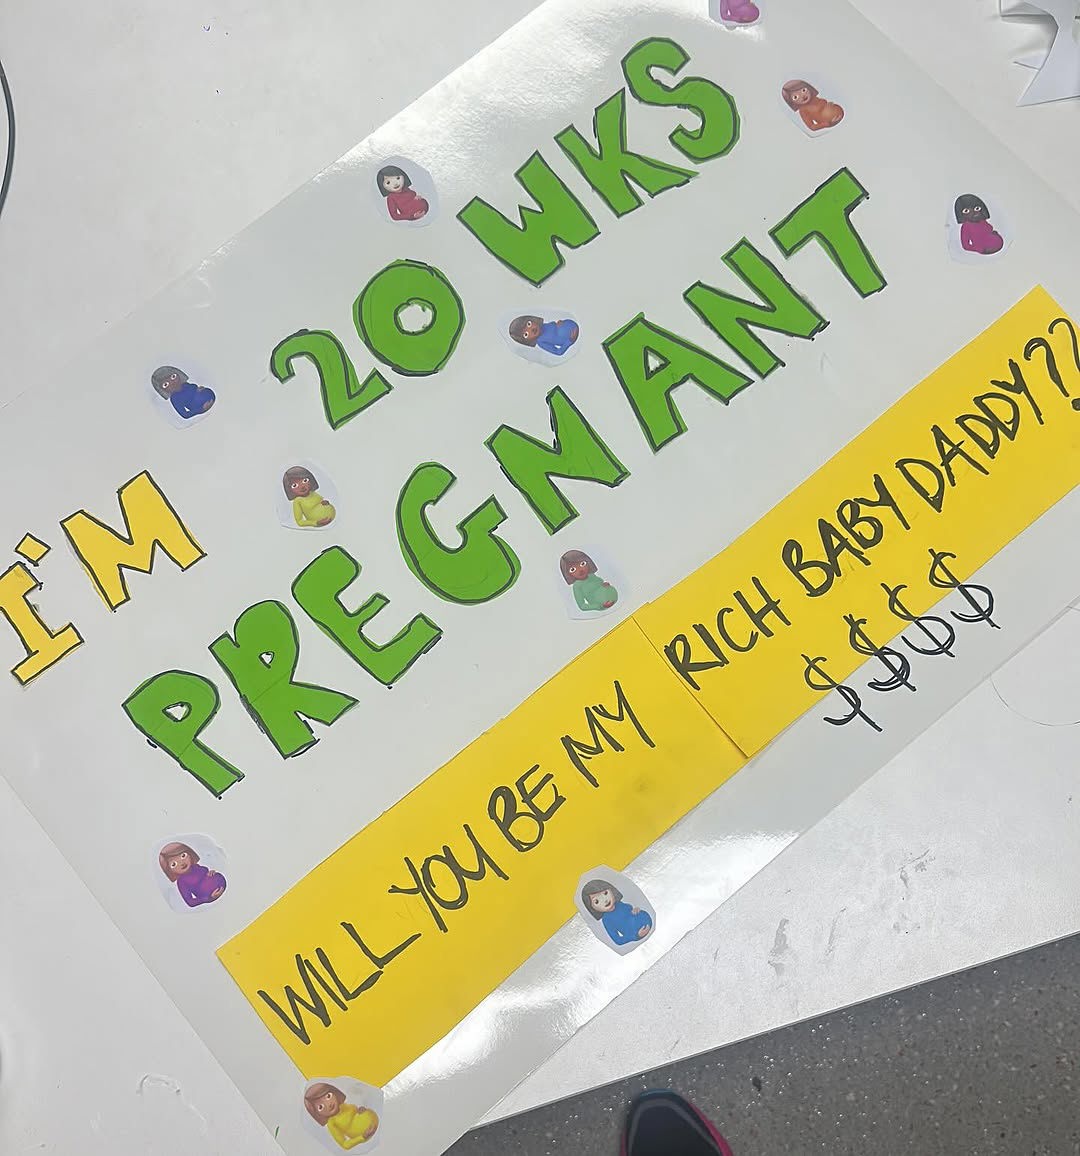 I'M 20 WKS
PREGNANT
WILL YOU BE MY RICH BABY DADDY??
$$$$